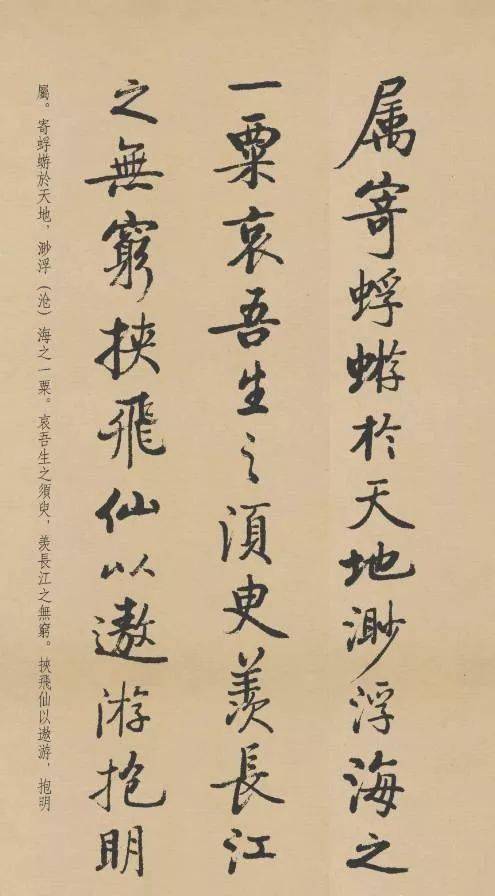 属寄蜉蝣於天地渺浮海之
一粟哀吾生之須臾羨長江
之無窮挾飛仙以遨游抱明
屬。寄蜉蝣於天地，渺浮（沧）海之一粟。哀吾生之須臾，羨長江之無窮。挾飛仙以遨游，抱明